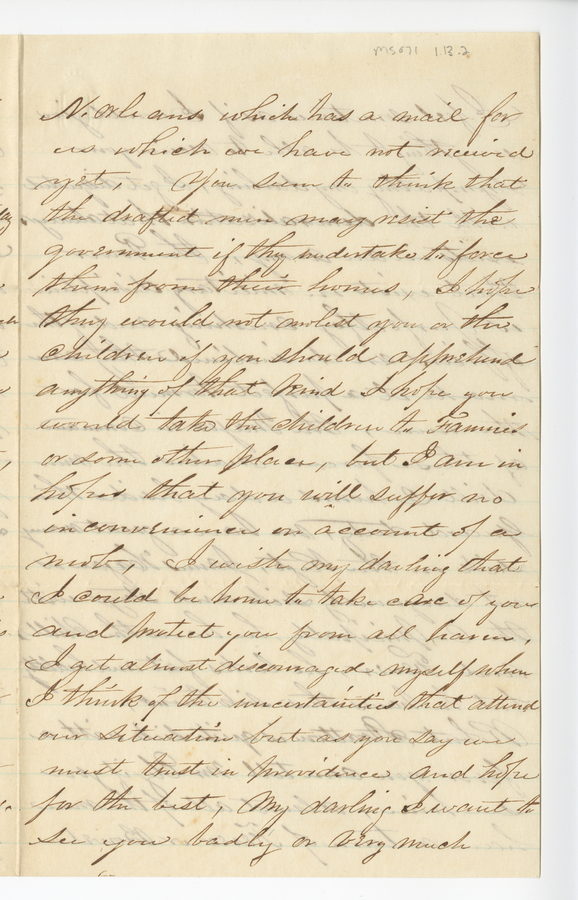 MS071 1.13.2
N. Orleans which has a mail for
us which we have not received
yet, You seem to think that
the drafted men may resist the
government if they undertake to force
them from their homes, I hope
they would not molest you or the
children if you should apprehend
anything of that kind I hope you
would take the children to Fannies
or some other place, but I am in
hopes that you will suffer no
inconvenience on account of a
mob, I wish my darling that
I could be home to take care of you
and protect you from all harm,
I get almost discouraged myself when
I think of the uncertainties that attend
our situation but as you say we
must trust in providence and hope
for the best, My darling I want to
see you badly or very much